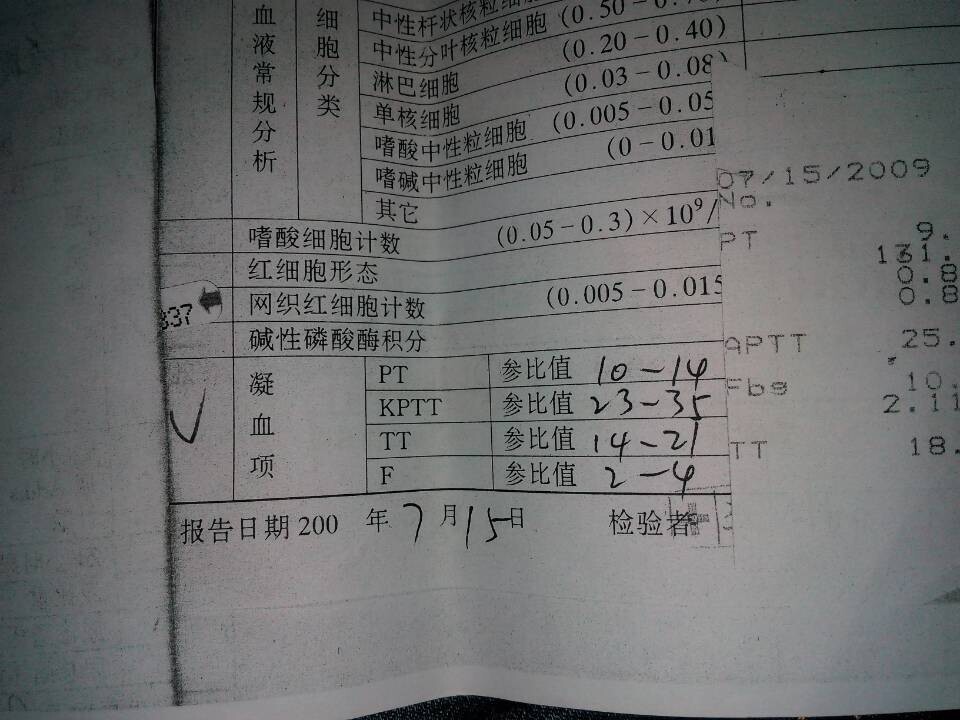 血液常规分析
细胞分类
中性杆状核粒细胞
中性分叶核粒细胞 (0.50-0.70)
淋巴细胞 (0.20-0.40)
单核细胞 (0.03-0.08)
嗜酸中性粒细胞 (0.005-0.05
嗜碱中性粒细胞 (0-0.01
其它
嗜酸细胞计数 (0.05-0.3)×10⁹/
红细胞形态
网织红细胞计数 (0.005-0.015
碱性磷酸酶积分
337
凝血项
PT 参比值 10-14
KPTT 参比值 23-35
TT 参比值 14-21
F 参比值 2-4
报告日期200 年7月15日 检验者
07/15/2009
No.
PT 9.
131.
0.8
0.8
APTT 25.
Fbg 10.
2.11
TT 18.